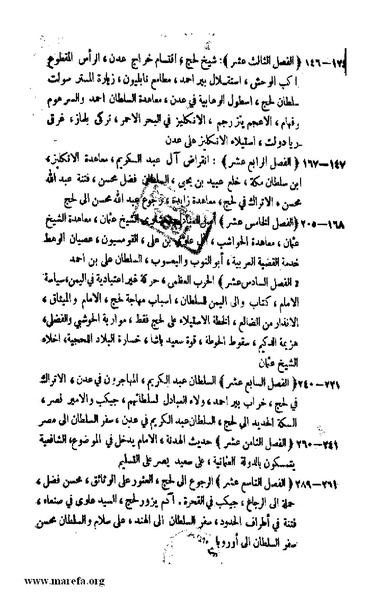 ١٤٦ ( الفصل الثالث عشر ) : شيخ لحج ، اقتسام خراج عدن ، الرأس المقطوع
اكب الوحش ، استقلال بير احمد ، مطامع نابليون ، زيارة المستر سولت
سلطان لحج ، اسطول الوهابية في عدن ، معاهدة السلطان احمد والسرهوم
وفهام ، الاعجم يتزحم ، الانكليز في البحر الاحمر ، تركى بلماز ، غرق
ريا دولت ، استيلاء الانكليز على عدن
١٤٧–١٦٧ ( الفصل الرابع عشر ) : انقراض آل عبد الكريم ، معاهدة الانكليز ،
ابن سلطان مكة ، خلع عبيد بن يحي ، السلطان فضل محسن ، فتنة عبد الله
محسن ، الاتراك في لحج ، معاهدة زايدة ، رجوع عبد الله محسن الى لحج
١٦٨–٢٠٥ ( الفصل الخامس عشر ) الشيخ عثمان ، معاهدة الشيخ
عثمان ، معاهدة الحواشب ، بن على ، القومسيون ، عصيان الوهط
خدمة القضية العربية ، أبو النوب واليعسوب ، السلطان على بن احمد
( الفصل السادس عشر ) الحرب العظمى ، حركة غير اعتيادية في اليمن ، سياسة
الامام ، كتاب والى اليمن للسلطان ، اسباب مهاجمة لحج ، الامام والميثاق ،
الانذار من الضالع ، الخطة الاستيلاء على لحج فقط ، مواربة الحوشبي والفضلي ،
هزيمة الدكيم ، سقوط الحوطة ، قوة سعيد باشا ، خسارة البلاد اللحجية ، اخلاء
الشيخ عثمان
٢٢١–٢٤٠ ( الفصل السابع عشر ) السلطان عبد الكريم ، المهاجرون في عدن ، الاتراك
في لحج ، خراب بير احمد ، ولاء العبادل لسلطانهم ، جيكب والامير نصر ،
السكة الحديد الى لحج ، السلطان عبد الكريم في عدن ، سفر السلطان الى مصر
٢٤١–٢٦٠ ( الفصل الثامن عشر ) حديث الهدنة ، الامام يدخل في الموضوع ، الشافعية
يتمسكون بالدولة العثمانية ، على سعيد يصر على التسليم
٢٦١–٢٨٩ ( الفصل التاسع عشر ) الرجوع الى لحج ، العثور على الوثائق ، محسن فضل ،
حملة الى الرجاع ، جيكب في القحرة . اكم يزور لحج ، السيد علوى في صنعاء ،
فتنة في أطراف الحدود ، سفر السلطان الى الهند ، على سلام والسلطان محسن
سفر السلطان الى أوروبا
www.marefa.org